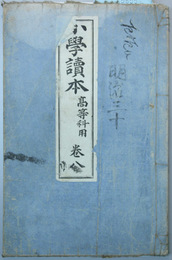 小學讀本
高等科用
卷八
明治三十